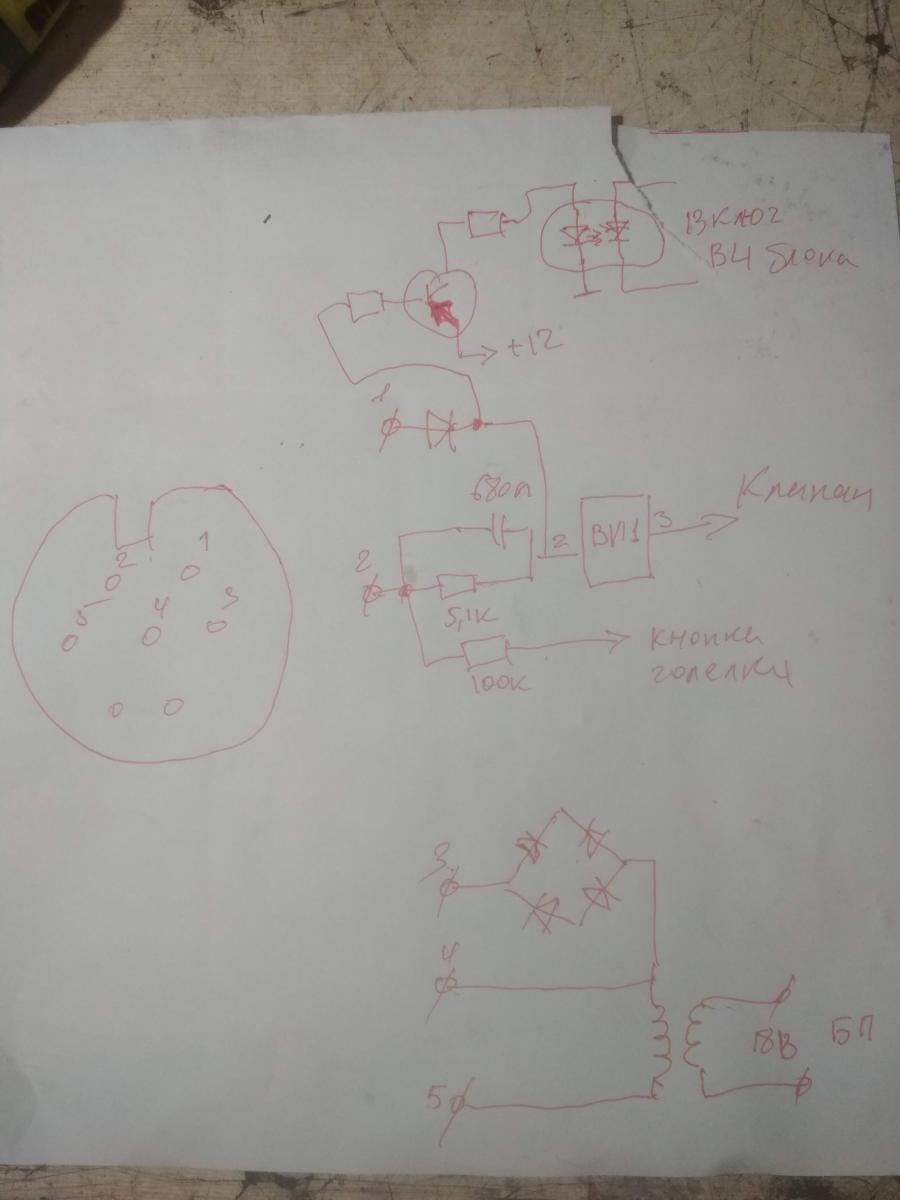 Включ
ВЧ блока
+12
1
680п
Клапан
2
ВИ1
3
2
5,1к
кнопка
горелки
100к
2
1
5
4
3
3
4
18В
БП
5